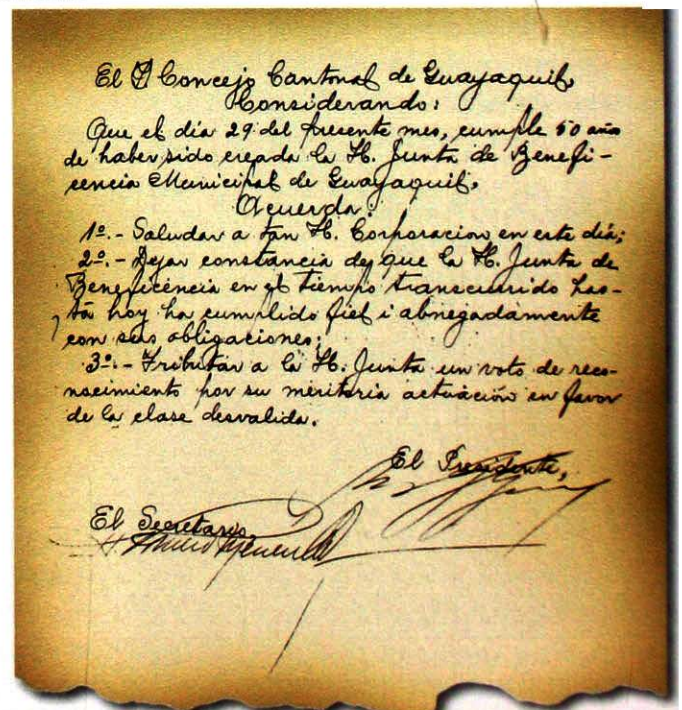 El I Concejo Cantonal de Guayaquil,
Considerando:
Que el día 29 del presente mes, cumple 50 años
de haber sido creada la H. Junta de Benefi-
cencia Municipal de Guayaquil,
Acuerda:
1º.- Saludar a tan H. Corporacion en este día;
2º.- Dejar constancia de que la H. Junta de
Beneficencia en el tiempo transcurrido has-
ta hoy ha cumplido fiel i abnegadamente
con sus obligaciones;
3º.- Tributar a la H. Junta un voto de reco-
nocimiento por su meritoria actuación en favor
de la clase desvalida.
El Presidente,
El Secretario